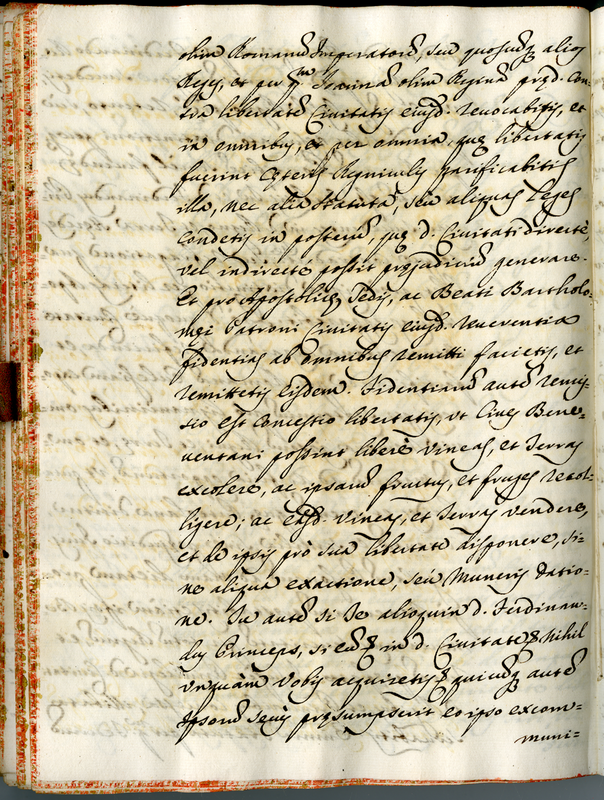 olim Romanũ Imperatorẽ, seu quoscũq; alios
Reges, et per qm̃ Joannã olim Reginã præd. con-
tra libertatẽ Civitatis eiusd. revocabitis, et
in omnibus, et per omnia, quę libertatis
fuerint cęteris Regniculis parificabitis
illã, nec alia statuta, seu aliquas Leges
condetis in posterũ, quę d. Civitati directè,
vel indirectè possit pręjudiciũ generare.
Et pro Apostolicę Sedis, ac Beati Bartholo-
męi Patroni Civitatis eiusd. reverentia
fidentias ab omnibus remitti facietis, et
remittetis Eisdem. Fidentiarũ autẽ remis-
sio est concessio libertatis, ut Cives Bene-
ventani possint liberè vineas, et Terras
excolere, ac ipsarũ fructus, et fruges recol-
ligere; ac easd. vineas, et Terras vendere,
et de ipsis prò sua libertate disponere, si-
ne aliqua exactione, seù muneris datio-
ne. Tu autẽ si Te alioquin d. Ferdinan-
dus Princeps, si in d. Civitate Nihil
unquàm vobis acquiretis quicũq; autẽ
Ipsorũ secùs pręsumpserit eo ipso excom-
muni-